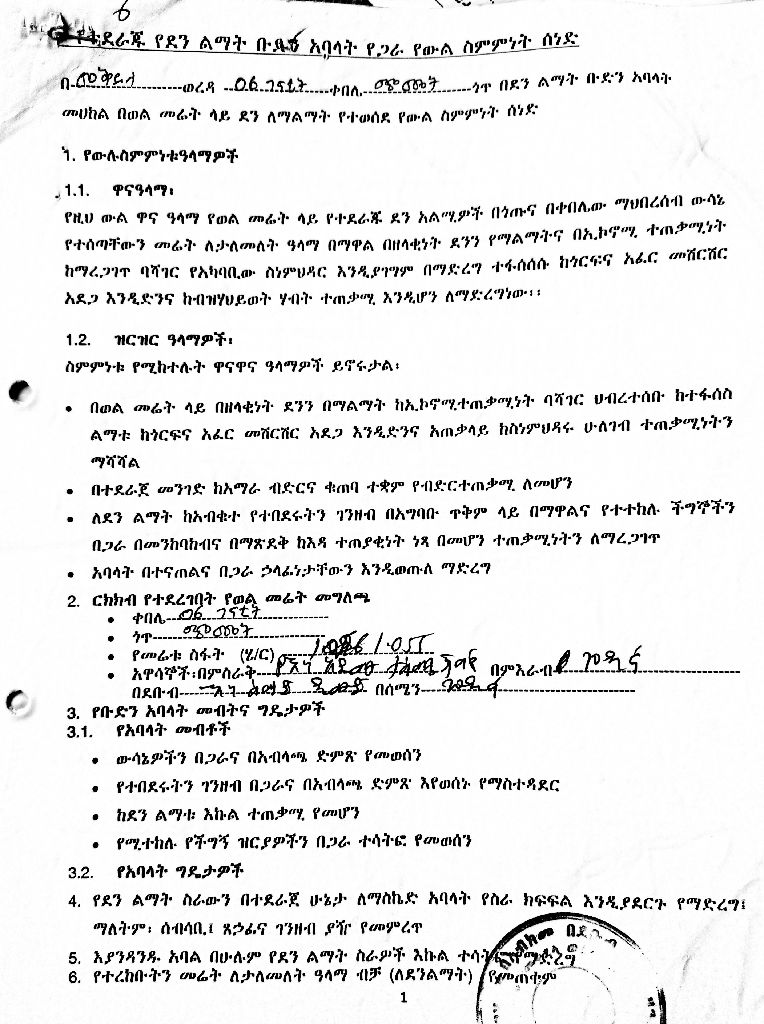 6
የተደራጁ የደን ልማት ቡድን አባላት የጋራ የውል ስምምነት ሰነድ
በ መቅደላ ወረዳ 06 ገናቲት ቀበሌ ጎጥ በደን ልማት ቡድን አባላት
መሀከል በወል መሬት ላይ ደን ለማልማት የተወሰደ የውል ስምምነት ሰነድ
1. የውሉስምምነቱዓላማዎች
1.1. ዋናዓላማ፡
የዚህ ውል ዋና ዓላማ የወል መሬት ላይ የተደራጁ ደን አልሚዎች በጎጡና በቀበሌው ማህበረሰብ ውሳኔ
የተሰጣቸውን መሬት ለታለመለት ዓላማ በማዋል በዘላቂነት ደንን የማልማትና በኢኮኖሚ ተጠቃሚነት
ከማረጋገጥ ባሻገር የአካባቢው ስነምህዳር እንዲያገግም በማድረግ ተፋሰሰሱ ከጎርፍና አፈር መሸርሸር
አደጋ እንዲድንና ከብዝሃህይወት ሃብት ተጠቃሚ እንዲሆን ለማድረግነው፡፡
1.2. ዝርዝር ዓላማዎች፡
ስምምነቱ የሚከተሉት ዋናዋና ዓላማዎች ይኖሩታል፡
• በወል መሬት ላይ በዘላቂነት ደንን በማልማት ከኢኮኖሚተጠቃሚነት ባሻገር ህብረተሰቡ ከተፋሰስ
ልማቱ ከጎርፍና አፈር መሸርሸር አደጋ እንዲድንና አጠቃላይ ከስነምህዳሩ ሁለገብ ተጠቃሚነትን
ማሻሻል
• በተደራጀ መንገድ ከአማራ ብድርና ቁጠባ ተቋም የብድርተጠቃሚ ለመሆን
• ለደን ልማት ከአብቁተ የተበደሩትን ገንዘብ በአግባቡ ጥቅም ላይ በማዋልና የተተከሉ ችግኞችን
በጋራ በመንከባከብና በማጽደቅ ከእዳ ተጠያቂነት ነጻ በመሆን ተጠቃሚነትን ለማረጋገጥ
• አባላት በተናጠልና በጋራ ኃላፊነታቸውን እንዲወጡለ ማድረግ
2. ርክክብ የተደረገበት የወል መሬት መግለጫ
• ቀበሌ 06 ገናቲት
• ጎጥ
• የመሬቱ ስፋት (ሄ/ር) 1.055
• አዋሳኞች፡በምስራቅ በምእራብ
በደቡብ በሰሜን
3. የቡድን አባላት መብትና ግዴታዎች
3.1. የአባላት መብቶች
• ውሳኔዎችን በጋራና በአብላጫ ድምጽ የመወሰን
• የተበደሩትን ገንዘብ በጋራና በአብላጫ ድምጽ እየወሰኑ የማስተዳደር
• ከደን ልማቱ እኩል ተጠቃሚ የመሆን
• የሚተከሉ የችግኝ ዝርያዎችን በጋራ ተሳትፎ የመወሰን
3.2. የአባላት ግዴታዎች
4. የደን ልማት ስራውን በተደራጀ ሁኔታ ለማስኬድ አባላት የስራ ክፍፍል እንዲያደርጉ የማድረግ፤
ማለትም፡ ሰብሳቢ፤ ጸኃፊና ገንዘብ ያዥ የመምረጥ
5. እያንዳንዱ አባል በሁሉም የደን ልማት ስራዎች እኩል ተሳትፎ የማድረግ
6. የተረከቡትን መሬት ለታለመለት ዓላማ ብቻ (ለደንልማት) የመጠቀም
1